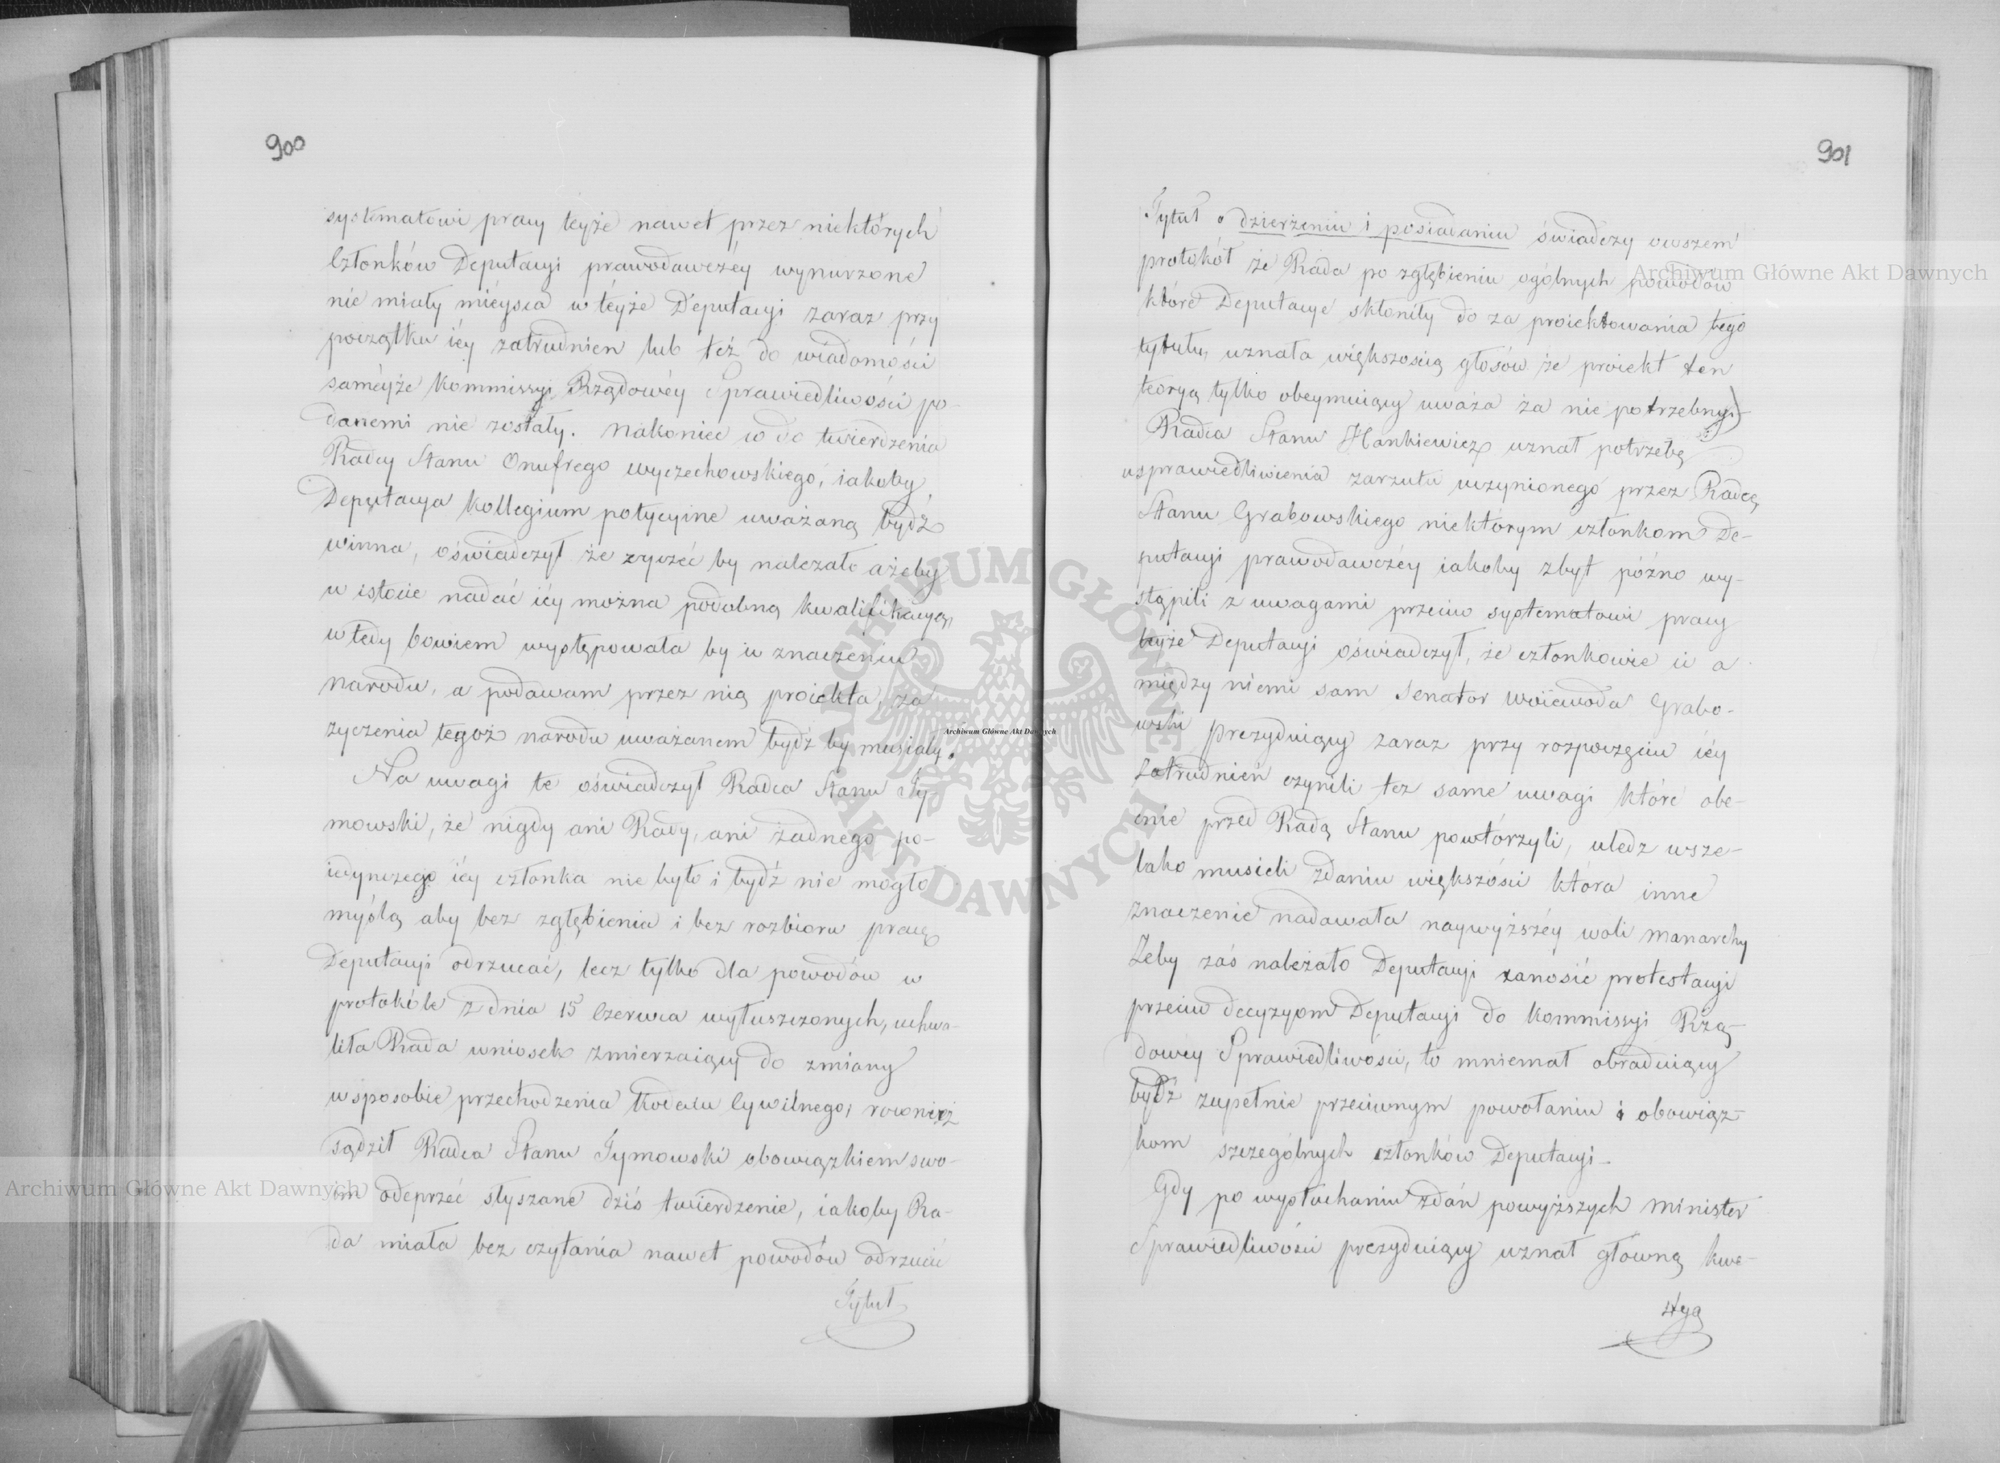 900
systematowi pracy teyże nawet przez niektórych
Członków Deputacyi prawodawczéy wynurzone
nie miały mieysca w téyże Deputacyi zaraz przy
początku iéy zatrudnien lub też do wiadomości
saméyże Kommissyi Rządowéy Sprawiedliwości po-
danemi nie zostały. Nakoniec co do twierdzenia
Radcy Stanu Onufrego Wyczechowskiego, iakoby
Deputacya Kollegium potycyine uważaną bydź
winna, oświadczył że zyczéć by nalezało ażeby
w istocie nadać iéy można podobną kwalifikacyą,
w tedy bowiem występowała by w znaczeniu
narodu, a podawam przez nią proiekta, za
zyczenia tegoż narodu uważanem bydź by musiały.
Na uwagi te oświadczył Radca Stanu Ty-
mowski, że nigdy ani Rady, ani żadnego po-
iedynczego iéy członka nie było i bydź nie mogło
myślą aby bez zgłębienia i bez rozbioru pracę
Deputacyi odrzucać, lecz tylko dla powodów w
protokóle z dnia 15 Czerwca wyłuszczonych, uchwa-
liła Rada wniosek zmierzaiący do zmiany
w sposobie przechodzenia Kodexu Cywilnego, rownież
sądził Radca Stanu Tymowski obowiązkiem swo-
im odeprzéć słyszane dziś twierdzenie, iakoby Ra-
da miała bez czytania nawet powodów odrzucić
Tytuł
901
Tytuł o dzierżeniu i posiadaniu świadczy owszem
protokół że Rada po zgłębieniu ogólnych powodów
które Deputacye skłoniły do za proiektowania tego
tytułu, uznała większością głosów że proiekt ten
teoryą tylko obeymuiący uważa za nie potrzebny.
Radca Stanu Hankiewicz uznał potrzebę
usprawiedliwienia zarzutu uczynionego przez Radcę
Stanu Grabowskiego niektórym członkom De-
putacyi prawodawczéy iakoby zbyt późno wy-
stąpili z uwagami przeciw systematowi pracy
teyże Deputacyi oświadczył, że członkowie ci a
między niemi sam Senator Woiewoda Grabo-
wski Prezyduiący zaraz przy rozpoczęciu iéy
zatrudnień czynili tez same uwagi które obe-
cnie przed Radą Stanu powtórzyli, uledz wsze-
lako musieli zdaniu większości która inne
znaczenie nadawała naywyższéy woli Manarchy
Żeby zaś należało Deputacyi zanosić protestacyi
przeciw decyzyom Deputacyi do Kommissyi Rzą-
dowey Sprawiedliwości, to mniemał obraduiący
bydź zupełnie przeciwnym powołaniu i obowiąz-
kom szczególnych członków Deputacyi.
Gdy po wysłuchaniu zdań powyższych Minister
Sprawiedliwości prezyduiący uznał główną kwe-
styą
Archiwum Główne Akt Dawnych
Archiwum Główne Akt Dawnych
Archiwum Główne Akt Dawnych
ARCHIWUM GŁÓWNE AKT DAWNYCH